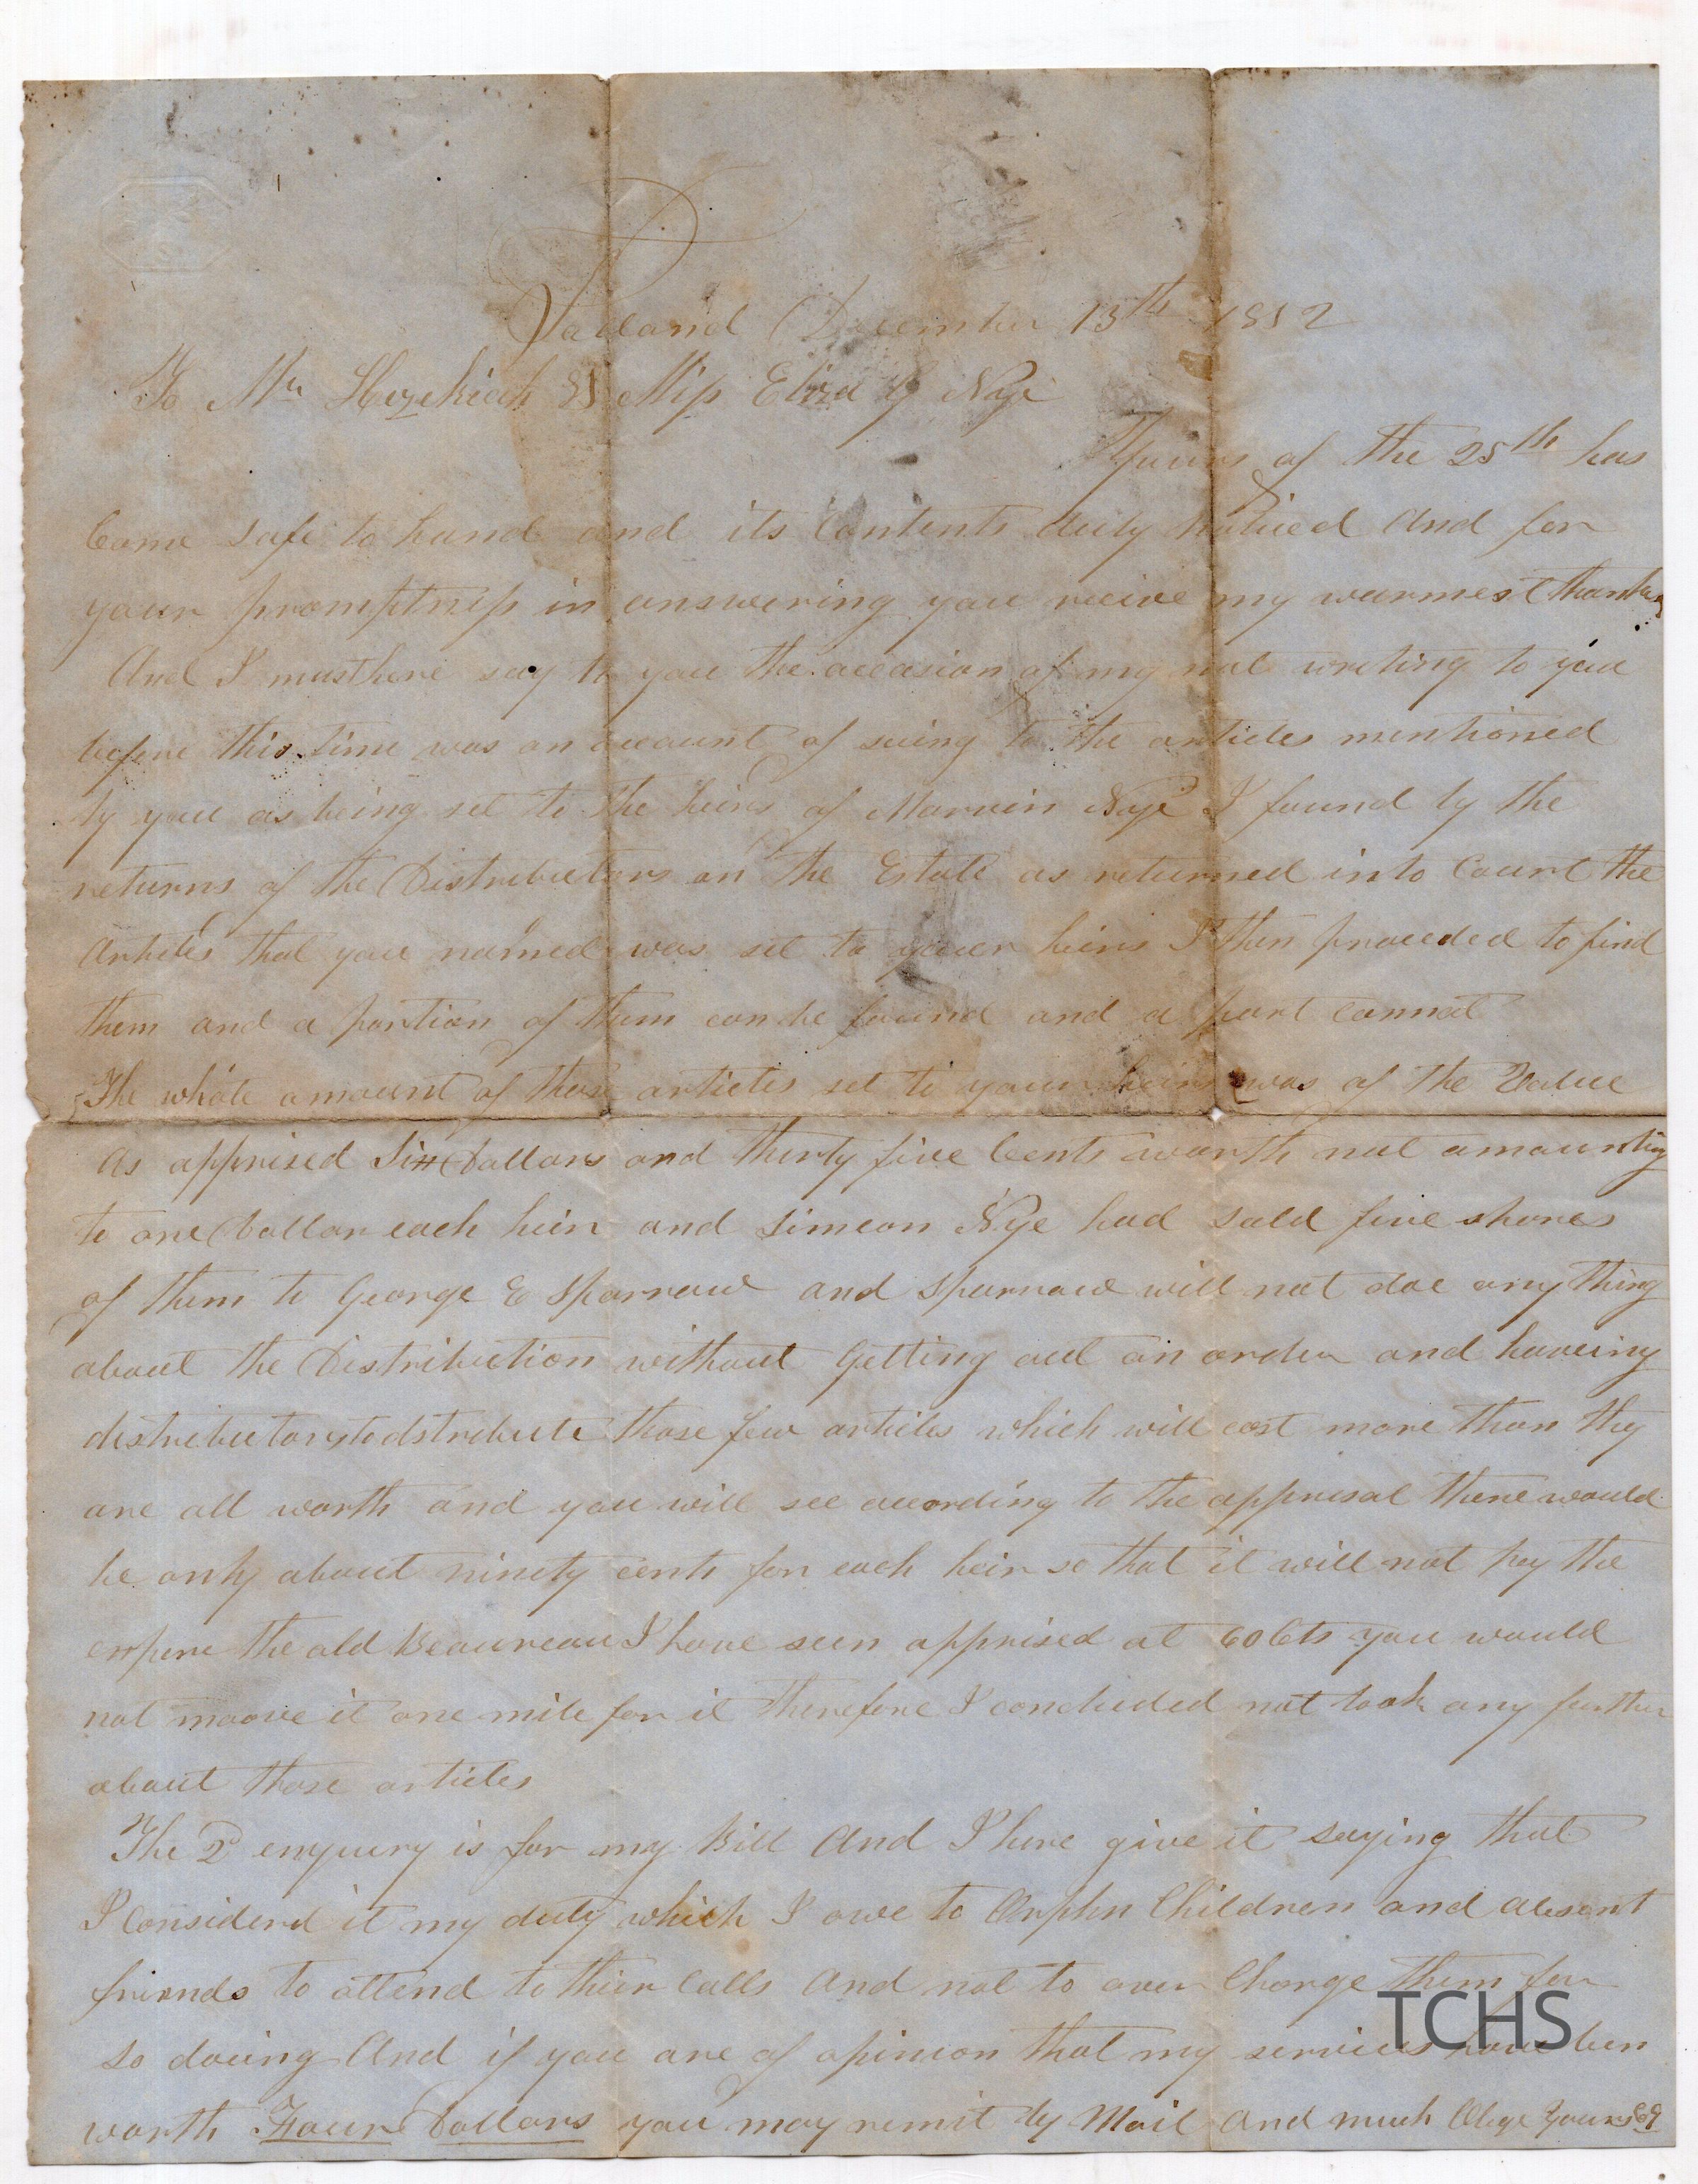 Tolland December 13th 1852
To Mr Hezekiah & Miss Eliza Y Nye
Yours of the 25th has
Come safe to hand and its Contents duly noticed And for
your promptness in answering you recive my warmest thanks
And I must here say to you the occasion of my not writing to you
before this time was on account of seeing to the articles mentioned
by you as being set to the heirs of Marvin Nye I found by the
returns of the Distributors on the Estate as returned into Court the
Articles that you named was set to your heirs I then proceded to find
them and a portion of them can be found and a part cannot
The whole amount of those articles set to your heirs was of the Value
As apprised Six Dollars and thirty five Cents worth not amounting
to one Dollar each heir and Simeon Nye had sold five shares
of them to George E Sparrow and Sparrow will not doe any thing
about the Distribution without Getting out an order and haveing
distributors to dstribute those few articles which will cost more than they
are all worth and you will see according to the apprisal there would
be only about ninety cents for each heir so that it will not pay the
expene the old Beaureau I have seen apprised at 60 Cts you would
not moove it one mile for it Therefore I concluded not look any further
about those articles
The 2d enquiry is for my Bill And I here give it saying that
I Considerd it my duty which I owe to Orphn Children and absent
friends to attend to thier Calls And not to over Charge them for
so doeing And if you are of opinion that my services have ben
worth Four Dollars you may remit by Mail and much Oblige Yours &c
TCHS